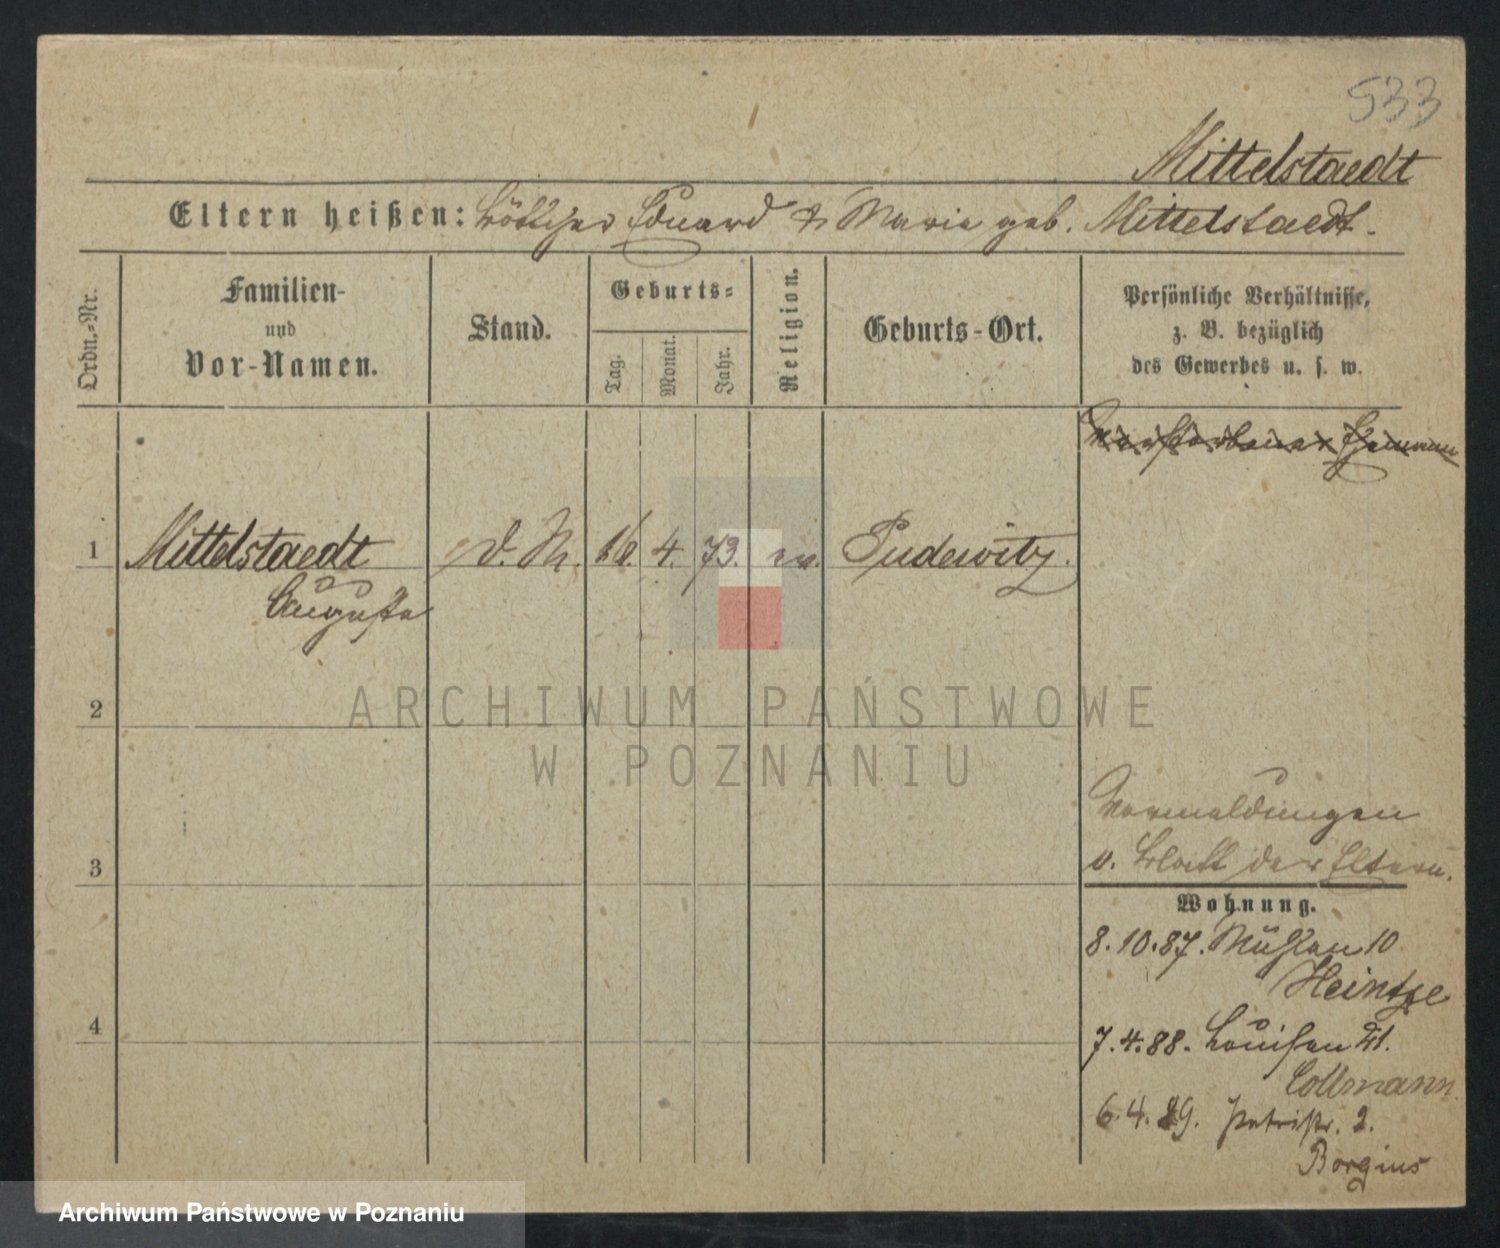 533
Mittelstaedt
Eltern heißen: Böttcher Eduard & Marie geb. Mittelstaedt.
Ordn.-Nr.
Familien-
und
Vor-Namen.
Stand.
Geburts-
Tag.
Monat.
Jahr.
Religion.
Geburts-Ort.
Persönliche Verhältnisse,
z. B. bezüglich
des Gewerbes u. s. w.
Verstorbener Ehemann
1 Mittelstaedt d. M. 16. 4. 73. ev. Pudewitz.
Auguste
2
ARCHIWUM PAŃSTWOWE
W POZNANIU
Vormeldungen
v. Blatt der Eltern.
3
Wohnung.
8.10.87. Mühlen 10
Heintze
4
7.4.88. Louisen 21.
Collmann
6.4.89. Petristr. 2.
Borgius
Archiwum Państwowe w Poznaniu